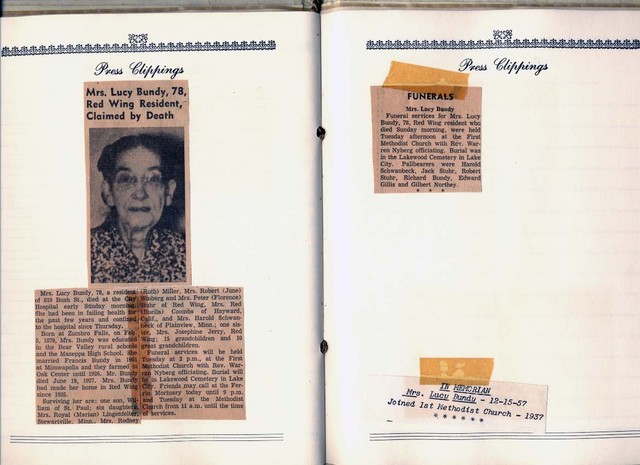 Press Clippings
Mrs. Lucy Bundy, 78,
Red Wing Resident,
Claimed by Death
Mrs. Lucy Bundy, 78, a resident
of 819 Bush St., died at the City
Hospital early Sunday morning.
She had been in failing health for
the past few years and confined
to the hospital since Thursday.
Born at Zumbro Falls, on Feb.
5, 1879, Mrs. Bundy was educated
in the Bear Valley rural schools
and the Mazeppa High School. She
married Francis Bundy in
at Minneapolis and they farmed at
Oak Center until 1926. Mr. Bundy
died June 19, 1927. Mrs. Bundy
had made her home in Red Wing
since 1935.
Surviving her are: one son, Wil-
liam of St. Paul; six daughters,
Mrs. Royal (Marian) Lingenfelter,
Stewartville, Minn., Mrs. Rodney
(Ruth) Miller, Mrs. Robert (June)
Winberg and Mrs. Peter (Florence)
Stuhr of Red Wing, Mrs. Red
Coombs of Hayward,
Calif., and Mrs. Harold Schwan-
beck of Plainview, Minn.; one sis-
ter, Mrs. Josephine Jerry, Red
Wing; 15 grandchildren and 10
great grandchildren.
Funeral services will be held
Tuesday at 2 p.m., at the First
Methodist Church with Rev. War-
ren Nyberg officiating. Burial will
be in Lakewood Cemetery in Lake
City. Friends may call at the Fer-
rin Mortuary today until 9 p.m.
and Tuesday at the Methodist
Church from 11 a.m. until the time
of services.
Press Clippings
FUNERALS
Mrs. Lucy Bundy
Funeral services for Mrs. Lucy
Bundy, 78, Red Wing resident who
died Sunday morning, were held
Tuesday afternoon at the First
Methodist Church with Rev. War-
ren Nyberg officiating. Burial was
in the Lakewood Cemetery in Lake
City. Pallbearers were Harold
Schwanbeck, Jack Stuhr, Robert
Stuhr, Richard Bundy, Edward
Gillis and Gilbert Northey.
* * *
IN MEMORIAN
Mrs. Lucy Bundy - 12-15-57
Joined 1st Methodist Church - 1937
* * * * * *